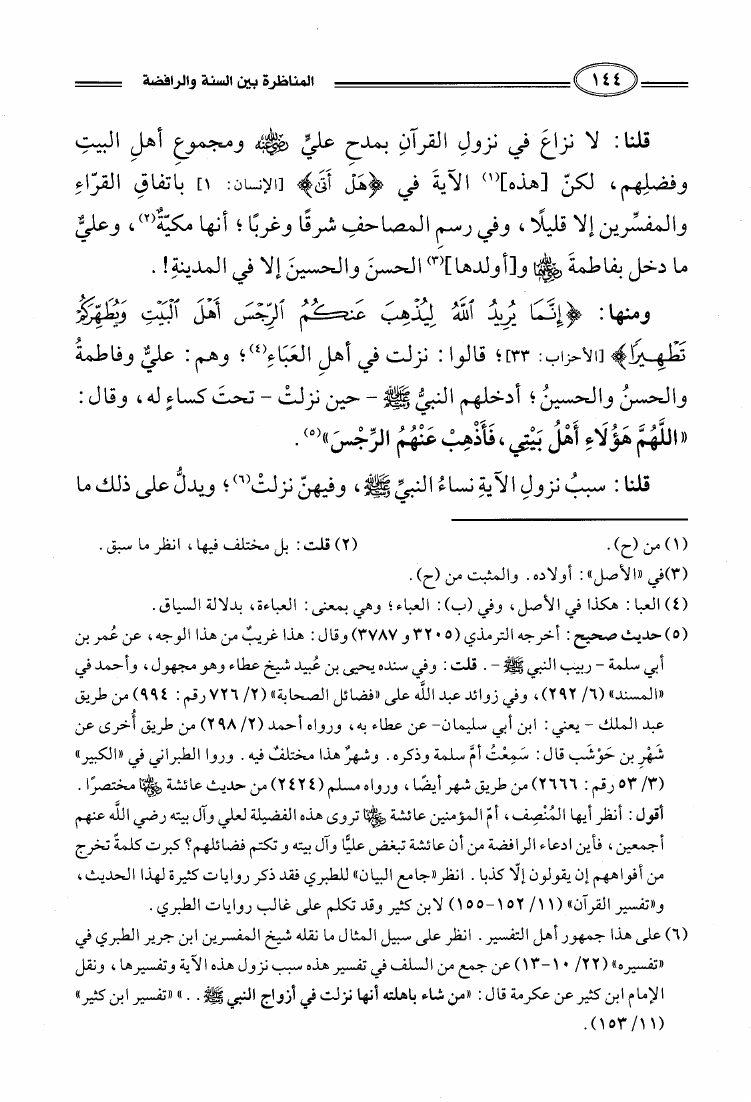 ١٤٤ المناظرة بين السنة والرافضة
قلنا: لا نزاعَ في نزولِ القرآنِ بمدحِ عليٍّ رضي الله عنه ومجموعِ أهلِ البيتِ
وفضلِهم، لكنّ [هذه](١) الآيةَ في ﴿هَلْ أَتَىٰ﴾ [الإنسان: ١] باتفاقِ القرّاءِ
والمفسِّرين إلا قليلًا، وفي رسمِ المصاحفِ شرقًا وغربًا؛ أنها مكيّةٌ(٢)، وعليٌّ
ما دخل بفاطمةَ رضي الله عنها و[أولدها](٣) الحسنَ والحسينَ إلا في المدينةِ!.
ومنها: ﴿إِنَّمَا يُرِيدُ ٱللَّهُ لِيُذْهِبَ عَنكُمُ ٱلرِّجْسَ أَهْلَ ٱلْبَيْتِ وَيُطَهِّرَكُمْ
تَطْهِيرًا﴾ [الأحزاب: ٣٣]؛ قالوا: نزلت في أهلِ العَبَاءِ(٤)؛ وهم: عليٌّ وفاطمةُ
والحسنُ والحسينُ؛ أدخلهم النبيُّ ﷺ - حين نزلتْ - تحتَ كساءٍ له، وقال:
«اللَّهُمَّ هَؤُلَاءِ أَهْلُ بَيْتِي، فَأَذْهِبْ عَنْهُمُ الرِّجْسَ»(٥).
قلنا: سببُ نزولِ الآيةِ نساءُ النبيِّ ﷺ، وفيهنّ نزلتْ(٦)؛ ويدلُّ على ذلك ما
(١) من (ح). (٢) قلت: بل مختلف فيها، انظر ما سبق.
(٣) في «الأصل»: أولاده. والمثبت من (ح).
(٤) العبا: هكذا في الأصل، وفي (ب): العباء؛ وهي بمعنى: العباءة، بدلالة السياق.
(٥) حديث صحيح: أخرجه الترمذي (٣٢٠٥ و ٣٧٨٧) وقال: هذا غريبٌ من هذا الوجه، عن عُمر بن
أبي سلمة - ربيب النبي ﷺ -. قلت: وفي سنده يحيى بن عُبيد شيخ عطاء وهو مجهول، وأحمد في
«المسند» (٦/ ٢٩٢)، وفي زوائد عبد اللَّه على «فضائل الصحابة» (٢/ ٧٢٦ رقم: ٩٩٤) من طريق
عبد الملك - يعني: ابن أبي سليمان- عن عطاء به، ورواه أحمد (٢/ ٢٩٨) من طريق أُخرى عن
شَهْرِ بن حَوْشَب قال: سَمِعْتُ أمَّ سلمة وذكره. وشهرٌ هذا مختلفٌ فيه. وروا الطبراني في «الكبير»
(٣/ ٥٣ رقم: ٢٦٦٦) من طريق شهر أيضًا، ورواه مسلم (٢٤٢٤) من حديث عائشة رضي الله عنها مختصرًا.
أقول: أنظر أيها المُنْصِف، أمّ المؤمنين عائشة رضي الله عنها تروى هذه الفضيلة لعلي وآل بيته رضي اللَّه عنهم
أجمعين، فأين ادعاء الرافضة من أن عائشة تبغض عليًّا وآل بيته و تكتم فضائلهم؟ كبرت كلمةً تخرج
من أفواههم إن يقولون إلّا كذبا. انظر«جامع البيان» للطبري فقد ذكر روايات كثيرة لهذا الحديث،
و«تفسير القرآن» (١١/ ١٥٢-١٥٥) لابن كثير وقد تكلم على غالب روايات الطبري.
(٦) على هذا جمهور أهل التفسير. انظر على سبيل المثال ما نقله شيخ المفسرين ابن جرير الطبري في
«تفسيره» (٢٢/ ١٠-١٣) عن جمع من السلف في تفسير هذه سبب نزول هذه الآية وتفسيرها، ونقل
الإمام ابن كثير عن عكرمة قال: «من شاء باهلته أنها نزلت في أزواج النبي ﷺ ..» «تفسير ابن كثير»
(١١/ ١٥٣).